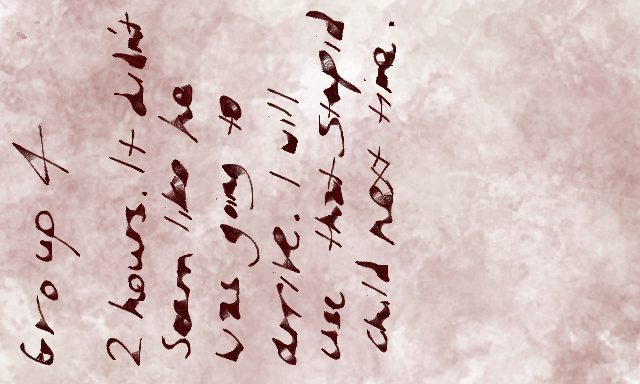 Group 4
2 hours. It didnt
seam like he
was going to
arrike. I will
use that stupid
child next time.